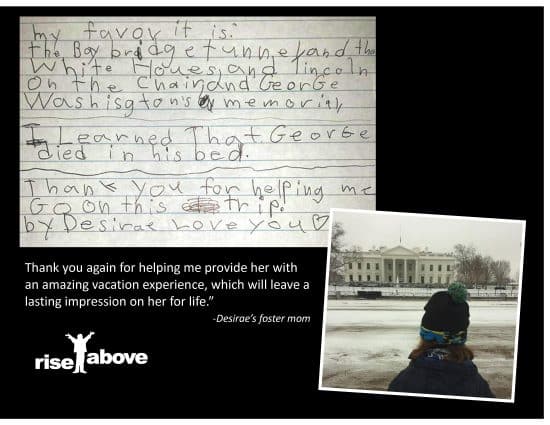 my favorit is:
the Bay bridge tunnel, and the
White Houes, and lincoln
On the Chair, and GeorGe
Washisgton's memorial
I Learned That George
died in his bed.
Thank you for helping me
Go on this trip.
by Desirae Love you♡
Thank you again for helping me provide her with
an amazing vacation experience, which will leave a
lasting impression on her for life.”
-Desirae’s foster mom
rise above